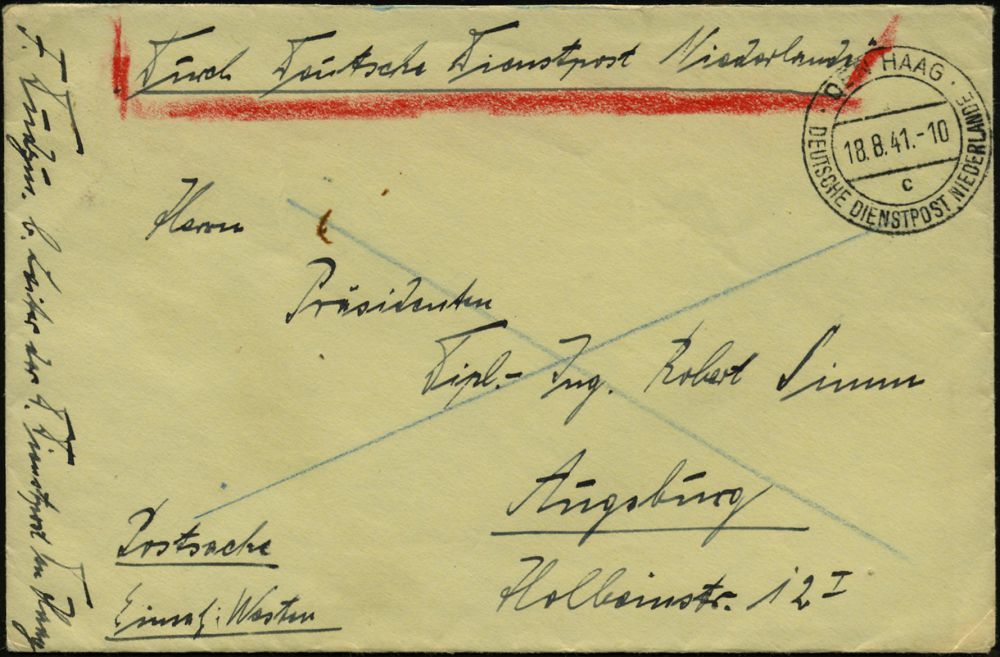 Durch Deutsche Dienstpost Niederlande
DEN HAAG
18.8.41.-10
c
DEUTSCHE DIENSTPOST NIEDERLANDE
Herrn
Präsidenten
Dipl.-Ing. Robert Simm
Augsburg
Holbeinstr. 12 I
Postsache
Einschr: Westen
b. Leiter der D. Dienstpost in Haag